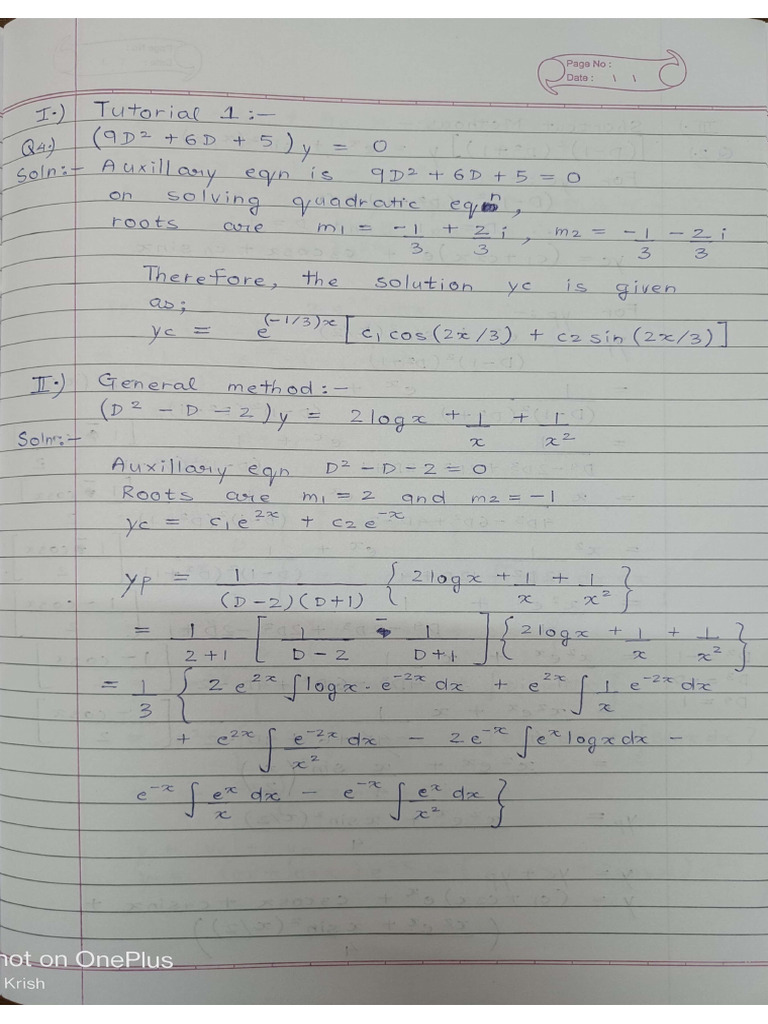 Page No :
Date :
I.) Tutorial 1 :-
Q4.) (9D² + 6D + 5) y = 0
Soln:- Auxillary eqn is 9D² + 6D + 5 = 0
on solving quadratic eqn,
roots are m1 = -1/3 + 2/3 i , m2 = -1/3 - 2/3 i
Therefore, the solution yc is given
as;
yc = e^(-1/3)x [ c1 cos(2x/3) + c2 sin(2x/3) ]
II.) General method :-
(D² - D - 2) y = 2logx + 1/x + 1/x²
Soln:-
Auxillary eqn D² - D - 2 = 0
Roots are m1 = 2 and m2 = -1
yc = c1e^2x + c2e^-x
yp = 1/((D-2)(D+1)) { 2logx + 1/x + 1/x² }
= 1/(2+1) [ 1/(D-2) - 1/(D+1) ] { 2logx + 1/x + 1/x² }
= 1/3 { 2e^2x ∫logx·e^-2x dx + e^2x ∫ 1/x e^-2x dx
+ e^2x ∫ e^-2x dx/x² - 2e^-x ∫e^x logx dx -
e^-x ∫ e^x dx/x - e^-x ∫ e^x dx/x² }
hot on OnePlus
Krish